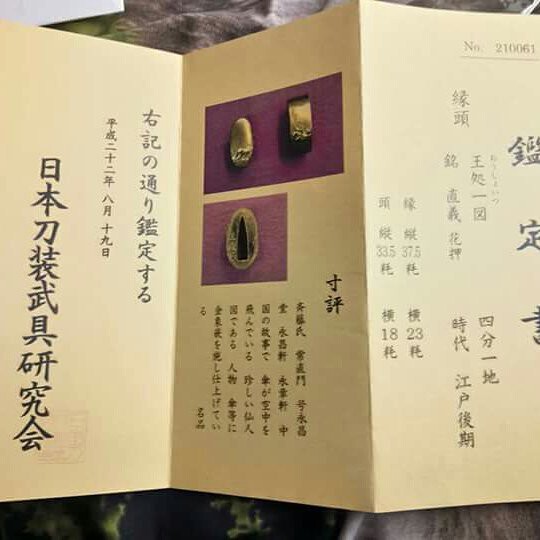 No. 210061
鑑定書
縁頭
王処一図
おうしょいつ
四分一地
銘 直義 花押
時代 江戸後期
縁 縦37.5粍 横23粍
頭 縦33.5粍 横18粍
寸評
斉藤氏 常直門 号永昌
堂 永昌軒 永章軒 中
国の故事で 傘が空中を
飛んでいる 珍しい仙人
図である 人物 傘等に
金象嵌を施し仕上げてい
る 名品
右記の通り鑑定する
平成二十二年 八月 十九日
日本刀装武具研究会